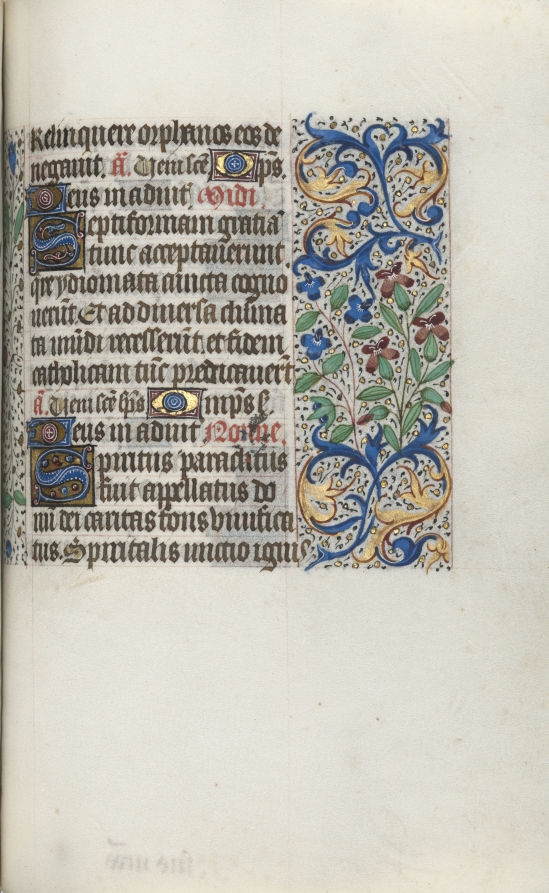 Relinquere orphanos eos de
negauit. añ. Veni scē ps.
Deus in adiut̄ Midi.
Septiformam gratiā
tunc acceptauerunt
qre ydiomata cuncta cogno
uerūt. Et ad diuersa clīma
ta mūdi recesserūt, et fidem
catholicam tūc predicauerūt
ā. Veni scē sps īmps e
Deus in adiut Nonne.
Spiritus paraclitus
fuit appellatus do
nū dei caritas fons viuifica
tus. Spiritalis unctio ignis